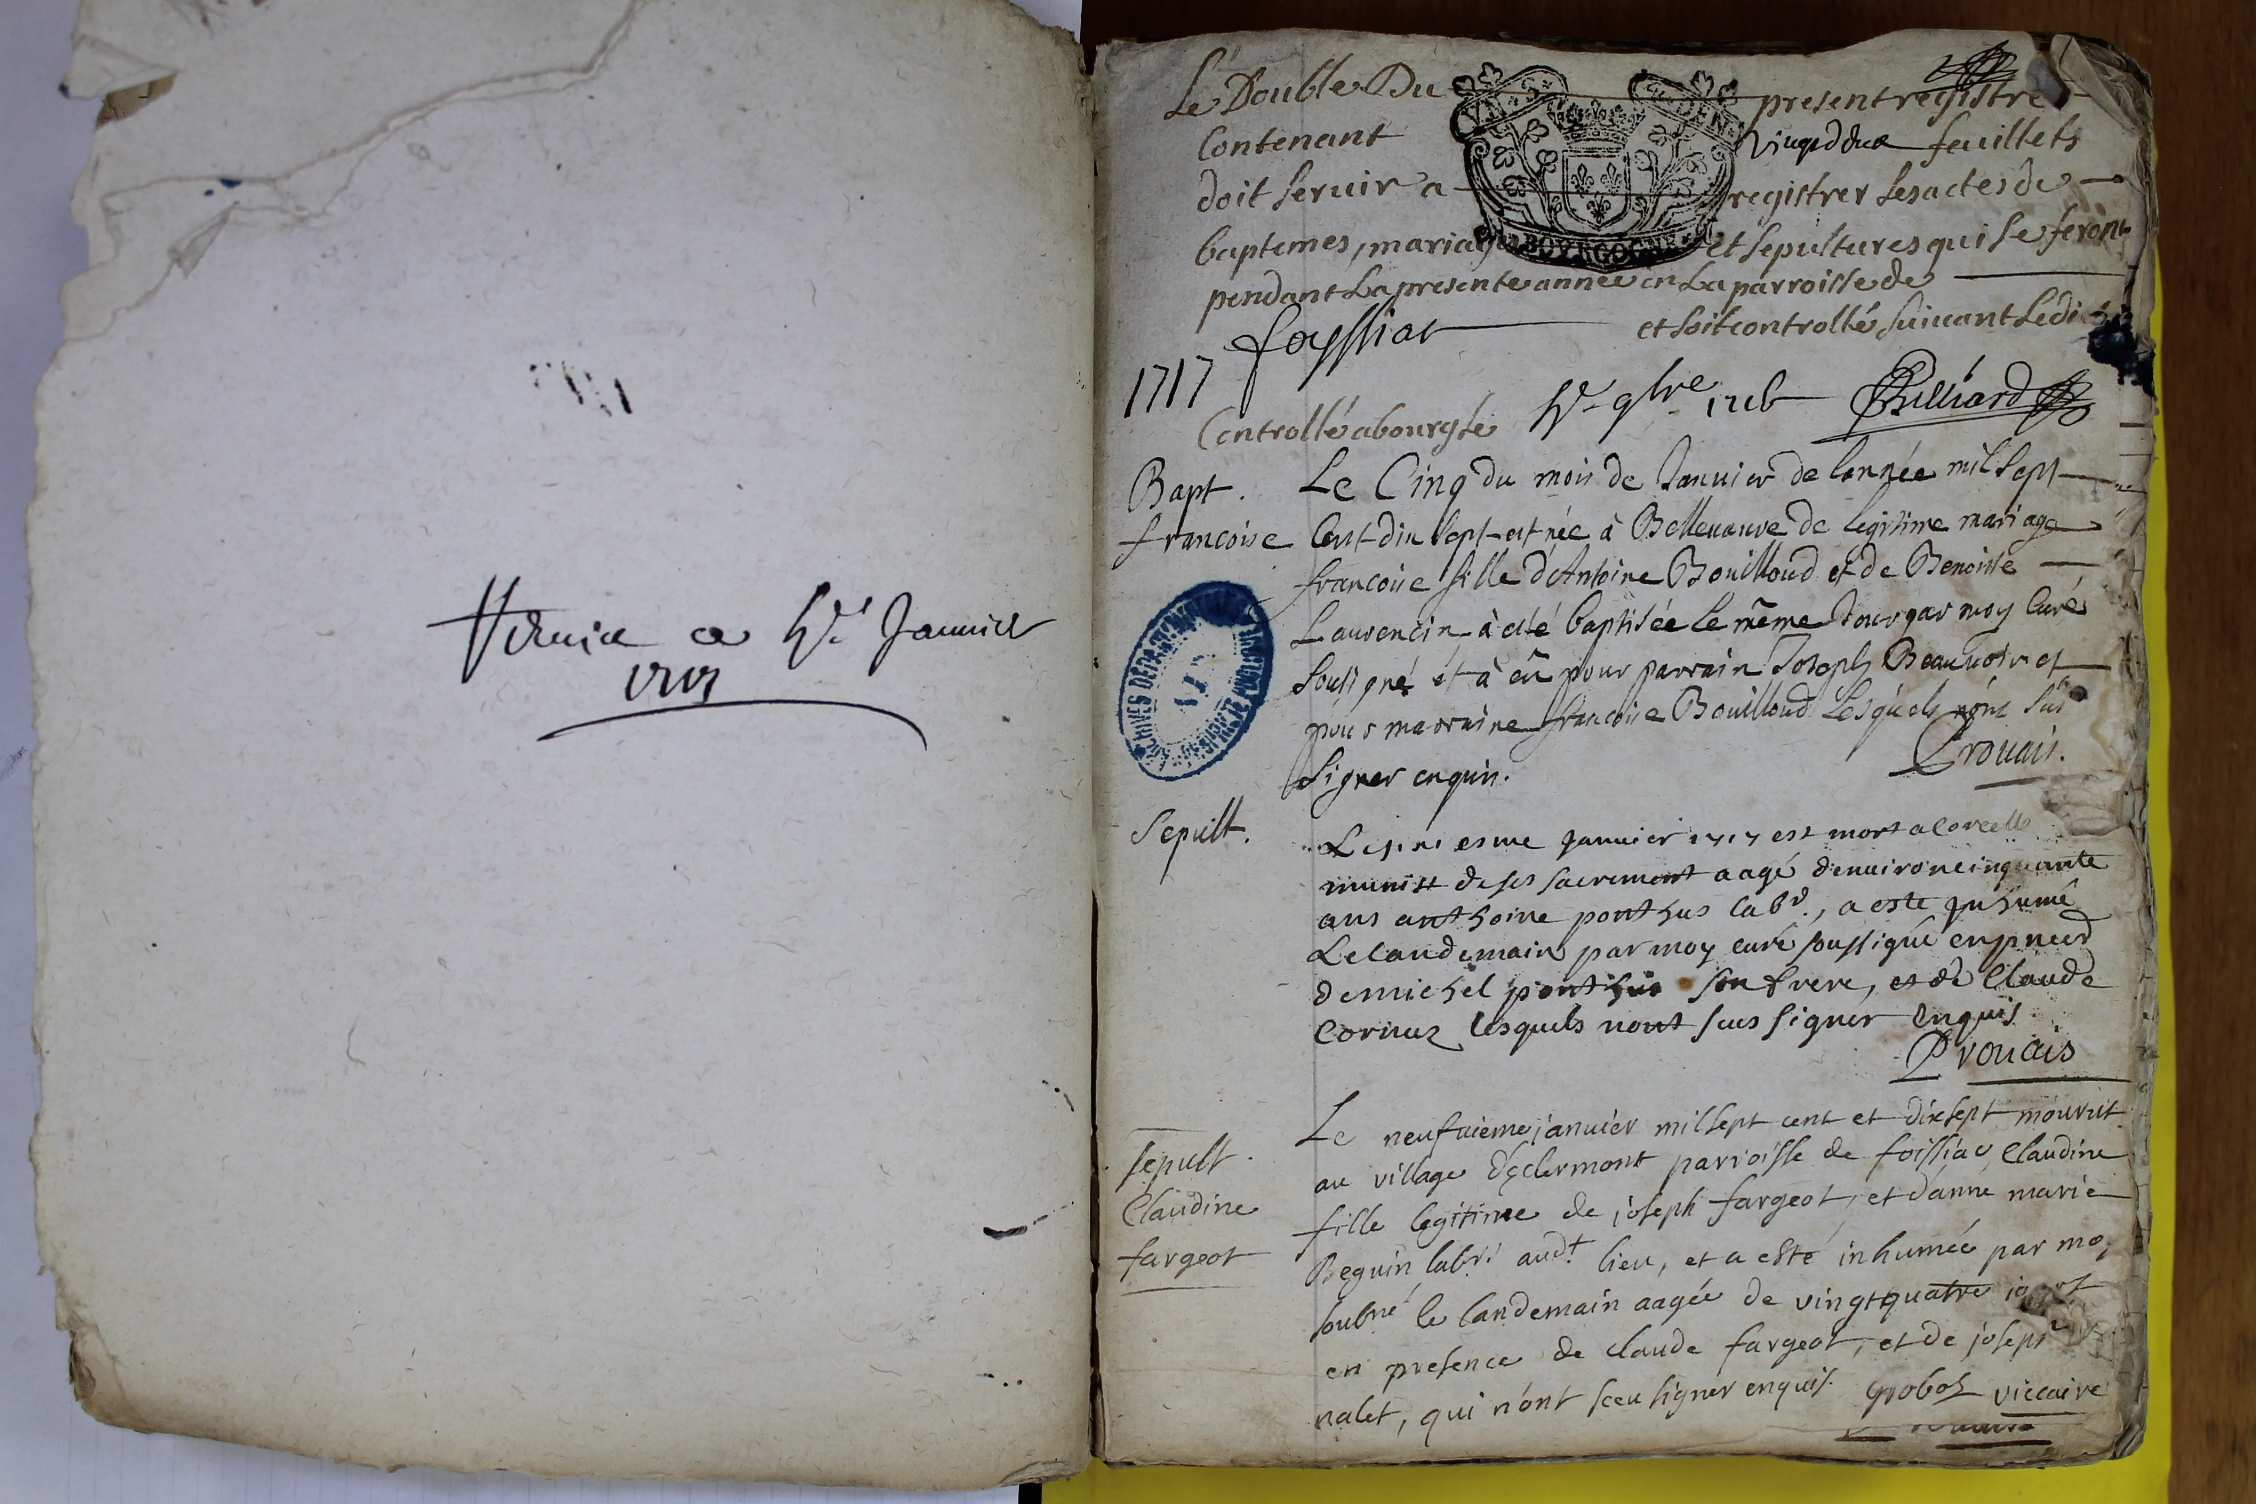 janvier
Le Double Du present registre
Contenant feuillets
doit servir a registrer les actes de
baptemes, mariages et sepultures qui se feront
pendant La presente année en La parroisse de
foyssiat et soit controllé suivant Ledi
1717
Controllé a bourg le 9bre Billiard
BOVRGOGNE
Bapt. Le Cinq du mois de Januier de lannée mil sept
francoise Cent dix sept est née à Belleuauve de legitime mariage
francoise fille d'Antoine Bouilloud et de Benoiste
Laurencin, à eté baptisée le même Jour par moy Curé
soûsigné et à eû pour parrain Joseph Beauuoir et
pour marraine francoise Bouilloud Lesquels n'ont sûs
signer enquis. Prouais.
ARCHIVES DEPARTEMENTALES
Sepult. Le januier 1717 est mort a corcelle
munist de ses sacrement aagé denuiron cinquante
ans anthoine ponthus labr., a este inhumé
Le landemain par moy curé soussigné en pnced
de michel ponthus son frere, et de Claude
Cornuz lesquels nont sceus signer enquis.
Prouais
Le neufuieme januier mil sept cent et dix sept mourut
sepult. au village d'Eclermont parroisse de foissiac Claudine
Claudine fille legitime de joseph fargeot, et d'anne marie
fargeot Beguin labrs audt. lieu, et a esté inhumée par moy
soubné le landemain aagée de vingt quatre jours
en presence de claude fargeot, et de joseph
nalet, qui n'ont sceu signer enquis. Grobos viccaire